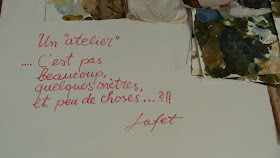 Un "atelier"
.... C'est pas
beaucoup,
quelques mètres,
et peu de choses...?!!
Lafet